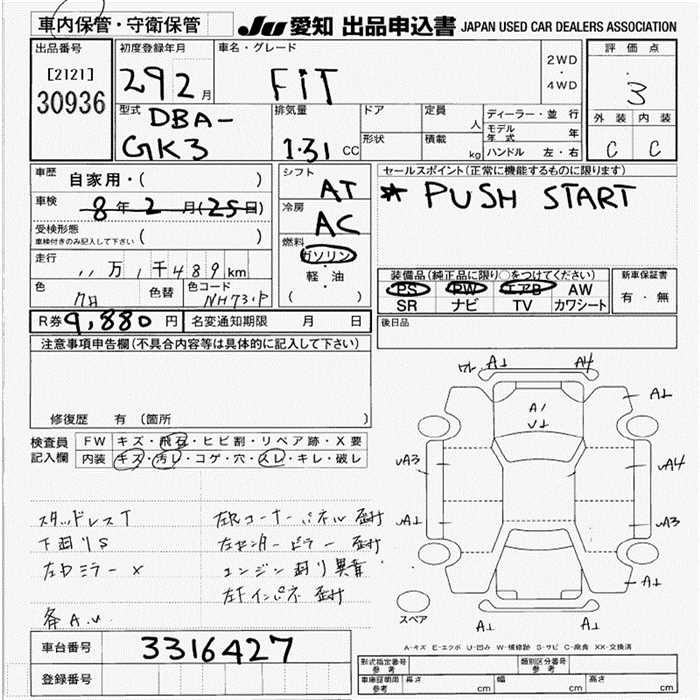 車内保管・守衛保管
JU 愛知 出品申込書 JAPAN USED CAR DEALERS ASSOCIATION
出品番号
[2121]
30936
初度登録年月
29 2 月
車名・グレード
FiT
2WD
・
4WD
評価点
3
外装 内装
C C
型式 DBA-
GK3
排気量
1.31 CC
ドア
形状
定員
人
積載
kg
ディーラー・並行
モデル年式 年
ハンドル 左・右
車歴
自家用・( )
車検 8年 2月(25日)
受検形態
車検付きのみ記入して下さい ( )
走行
11万 1千489km
色
色替
色コード
NH731P
シフト
AT
冷房
AC
燃料
ガソリン
・
軽・油
( )
セールスポイント(正常に機能するものに限ります)
* PUSH START
装備品(純正品に限り○をつけてください)
PS PW エアB AW
SR ナビ TV カワシート
新車保証書
有・無
R券 9,880 円
名変通知期限 月 日
後日品
注意事項申告欄(不具合内容等は具体的に記入して下さい)
修復歴 有(箇所 )
検査員
記入欄
FW キズ・飛石・ヒビ割・リペア跡・X要
内装 キズ・汚レ・コゲ・穴・スレ・キレ・破レ
スタッドレスT
下廻りS
左Dミラー X
各A.U.
左Rコーナーパネル
左センターピラー
エンジン廻り異音
左Fインパネ
ワレ A1 A4
A1
A1
U1
uA3 uA4
uA1 uA3
A1
A1 A1
スペア
A-キズ E-エクボ U-凹み W-補修跡 S-サビ C-腐食 XX-交換済
車台番号 3316427
登録番号
形式指定番号
参考
類別区分番号
参考
車庫証明用
参考
長さ cm
幅 cm
高さ cm